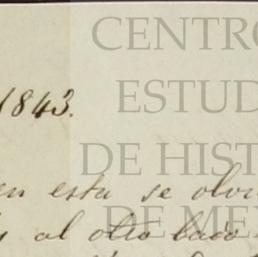 CENTRO
ESTUD
1843.
DE HIST
en esta se olvi
DE ME
s al otro lado